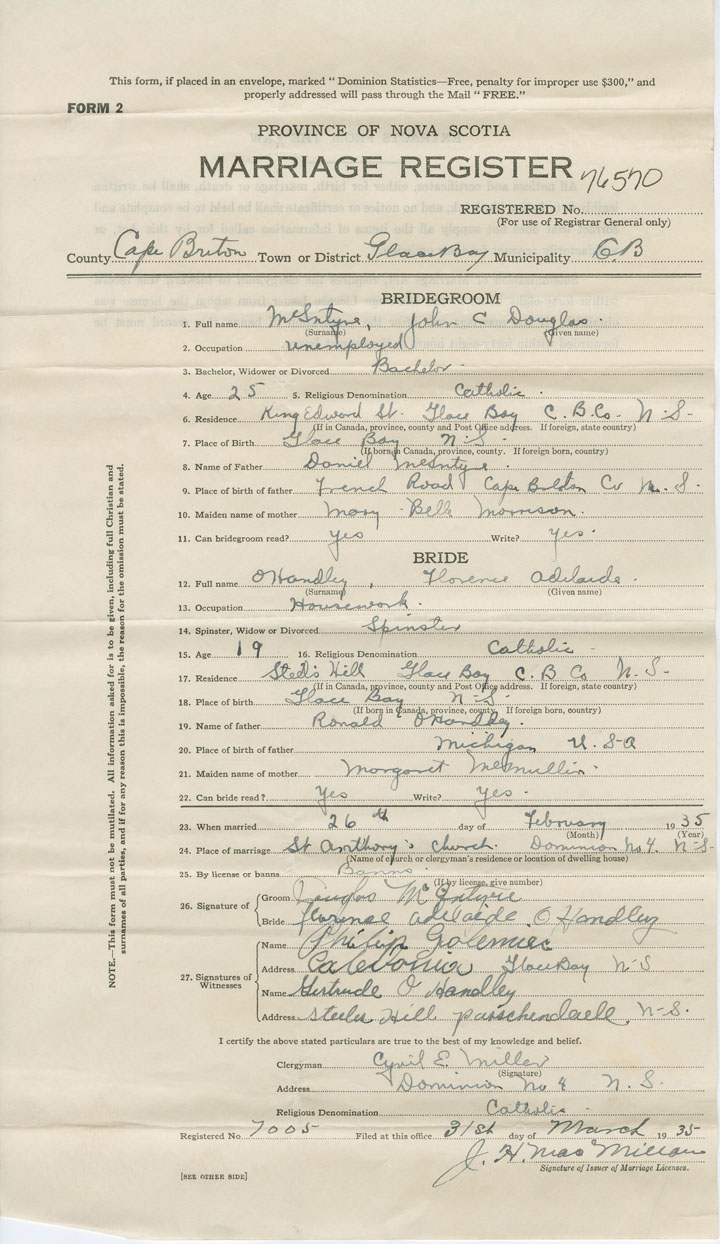 This form, if placed in an envelope, marked " Dominion Statistics—Free, penalty for improper use $300," and
properly addressed will pass through the Mail " FREE."
FORM 2
PROVINCE OF NOVA SCOTIA
MARRIAGE REGISTER 76570
REGISTERED No.
(For use of Registrar General only)
County Cape Breton Town or District Glace Bay Municipality C.B
BRIDEGROOM
1. Full name McIntyre, John C Douglas.
(Surname) (Given name)
2. Occupation unemployed
3. Bachelor, Widower or Divorced Bachelor.
4. Age 25 5. Religious Denomination Catholic.
6. Residence King Edward St. Glace Bay C.B.Co. N-S-
(If in Canada, province, county and Post Office address. If foreign, state country)
7. Place of Birth Glace Bay N-S.
(If born in Canada, province, county. If foreign born, country)
8. Name of Father Daniel McIntyre.
9. Place of birth of father French Road Cape Breton Co N. S.
10. Maiden name of mother Mary Bell Morrison.
11. Can bridegroom read? yes Write? Yes.
BRIDE
12. Full name O'Handley, Florence Adelaide.
(Surname) (Given name)
13. Occupation Housework.
14. Spinster, Widow or Divorced Spinster
15. Age 19 16. Religious Denomination Catholic-
17. Residence Steel's Hill Glace Bay C.B Co N-S-
(If in Canada, province, county and Post Office address. If foreign, state country)
18. Place of birth Glace Bay N-S-
(If born in Canada, province, county. If foreign born, country)
19. Name of father Ronald O'Handley.
20. Place of birth of father Michigan U. S-A
21. Maiden name of mother Margaret McMullin.
22. Can bride read? Yes Write? Yes.
23. When married 26th day of February 1935
(Month) (Year)
24. Place of marriage St Anthony's church. Dominion No 4. N-S-
(Name of church or clergyman's residence or location of dwelling house)
25. By license or banns Banns
(If by license, give number)
26. Signature of Groom Douglas McIntyre
Bride florence adelaide O Handley
27. Signatures of Witnesses Name Philip
Address Caledonia Glace Bay N-S
Name Gertrude O Handley
Address Steeles Hill passchendaele N-S.
I certify the above stated particulars are true to the best of my knowledge and belief.
Clergyman Cyril E. Miller
(Signature)
Address Dominion No 4 N. S.
Religious Denomination Catholic-
Registered No 7005 Filed at this office 31st day of March 1935
J. H. MacMillan
Signature of Issuer of Marriage Licenses.
[SEE OTHER SIDE]
NOTE.—This form must not be mutilated. All information asked for is to be given, including full Christian and
surnames of all parties, and if for any reason this is impossible, the reason for the omission must be stated.